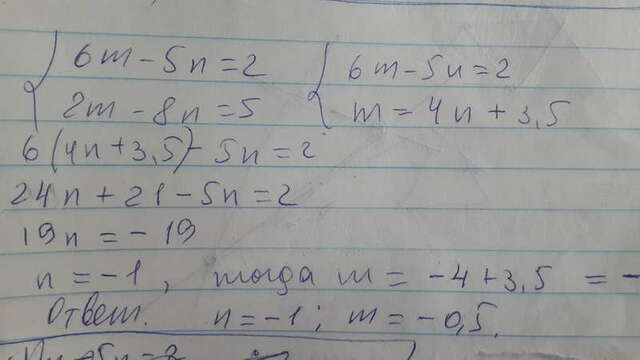 6m - 5n = 2 6m - 5n = 2
2m - 8n = 5 m = 4n + 3,5
6(4n + 3,5) - 5n = 2
24n + 21 - 5n = 2
19n = - 19
n = -1, тогда m = -4 + 3,5 = -
Ответ. n = -1; m = -0,5.